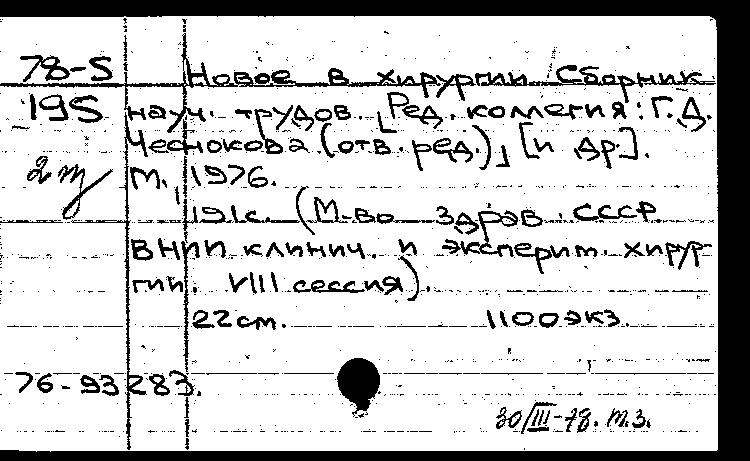 78-5 Новое в хирургии Сборник
195 науч. трудов. [Ред. комегия: Г.Д.
Чеснокова (отв. ред.)] [и др.].
2 т М., 1976.
191с. (М-во здрав. СССР
ВНИИ клинич. и эксперим. хирур-
гии. VIII сессия).
22см. 1100экз.
76-93283.
30/III-78. т.з.